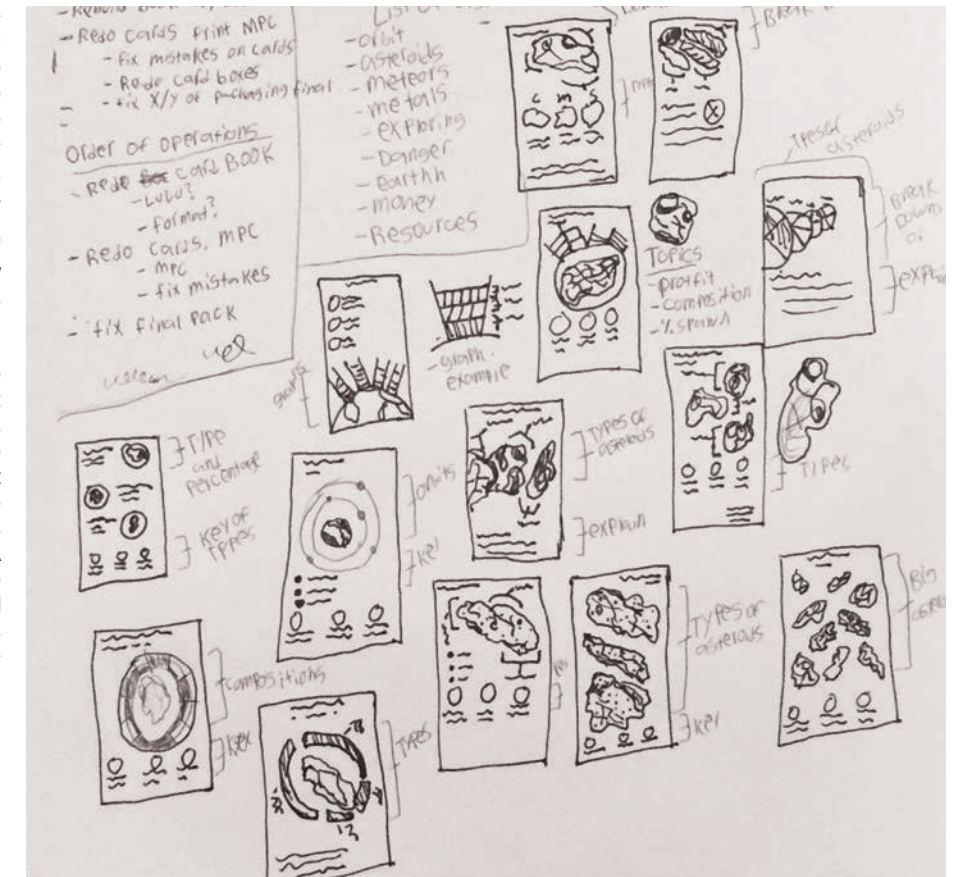 - Redo cards print MPC
- fix mistakes on cards
- Redo card boxes
- fix X/Y of packaging final
Order of operations
- Redo card BOOK
- LULU?
- format?
- Redo cards, MPC
- MPC
- fix mistakes
- fix final pack
- orbit
- asteroids
- meteors
- metals
- exploring
- Danger
- Earthh
- money
- Resources
Break
Types of asteroids
Break Downs of
explain
TOPICS
- proffit
- composition
- % spawn
- graph example
graphs
Type and percentage
Key of types
orbits
Key
Types of asteroids
explain
Types
compositions
Key
Types
Key
Types of asteroids
Key
Big